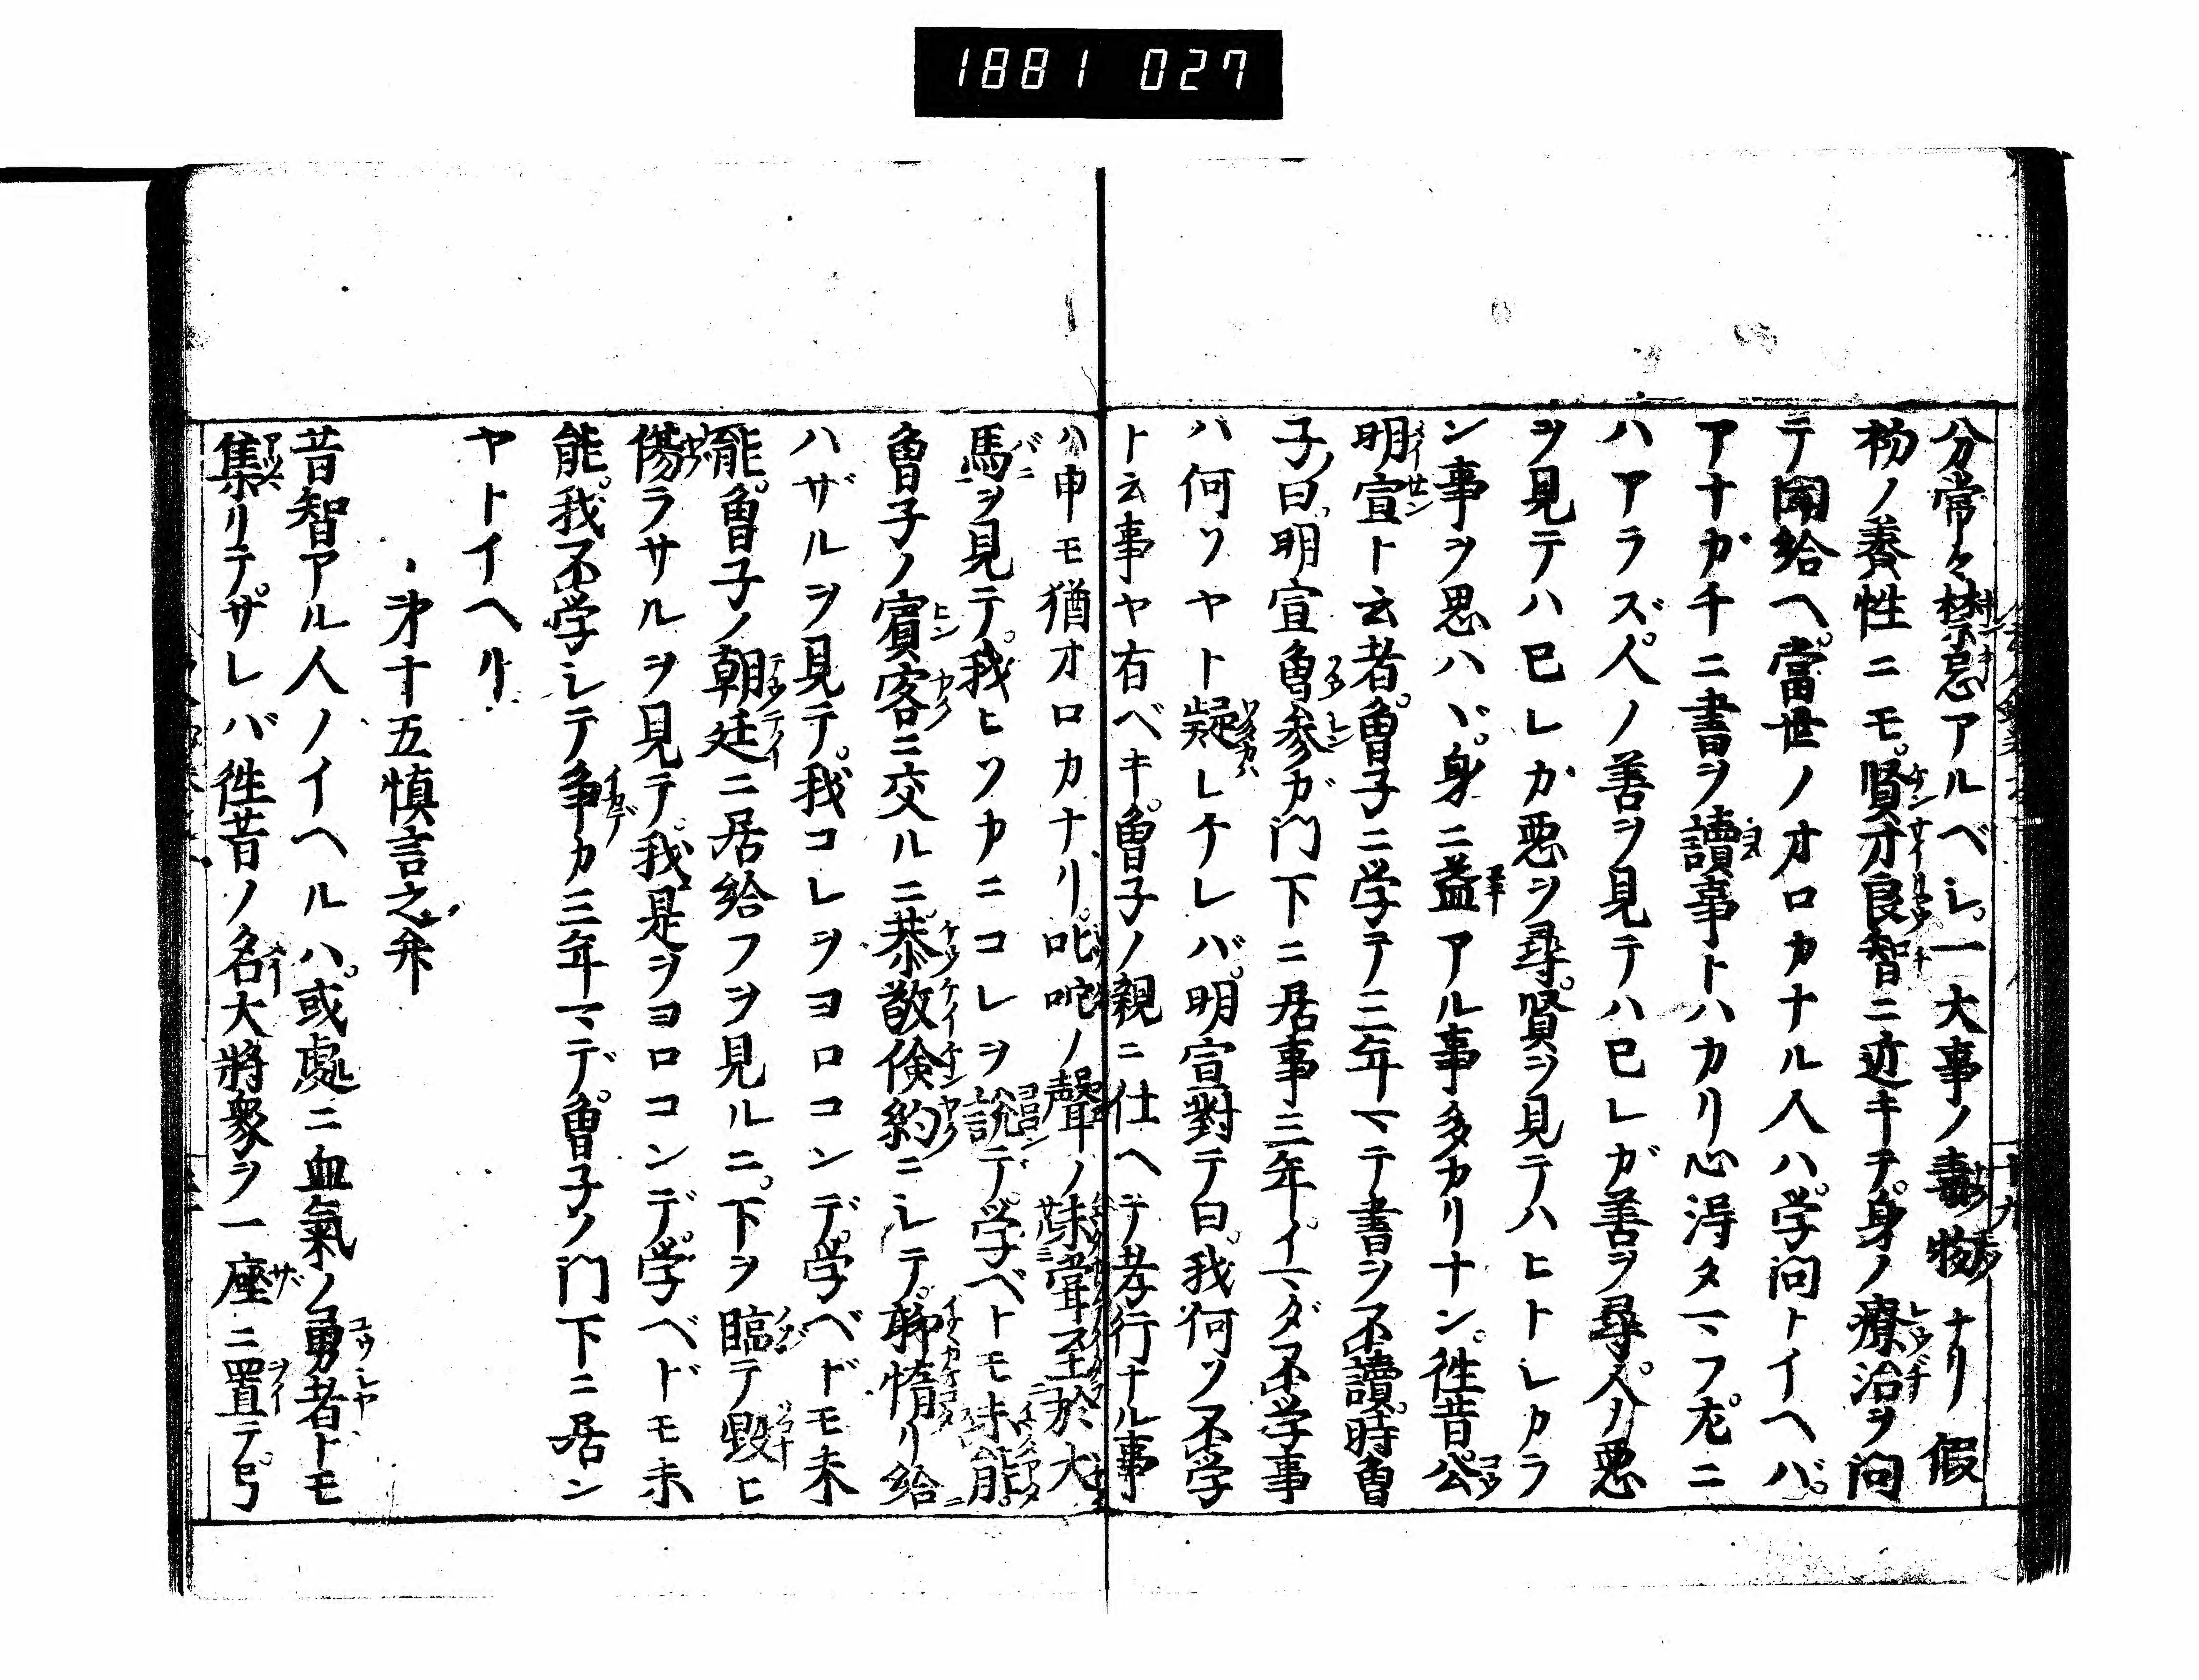 1881 027
分常々禁忌アルベシ。一大事ノ毒物ナリ假
初ノ養性ニモ。賢才良智ニ近キテ。身ノ療治ヲ問
テ聞給ヘ。當世ノオロカナル人ハ。学問トイヘバ。
アナガチニ書ヲ讀事トハカリ心得タマフ。尤ニ
ハアラズ。人ノ善ヲ見テハ己レガ善ヲ尋。人ノ悪
ヲ見テハ己レガ悪ヲ尋。賢ヲ見テハヒトシカラ
ン事ヲ思ハヾ。身ニ益アル事多カリナン。徃昔。公
明宣ト云者。曽子ニ学テ三年マテ書ヲ不讀。時曽
子ノ曰。明宣曽参ガ門下ニ居事三年。イマダ不学事
ハ何ソヤト疑シケレバ。明宣對テ曰。我何ソ不学
ト云事ヤ有ベキ。曽子ノ親ニ仕ヘテ孝行ナル事
ハ申モ猶オロカナリ。叱咤ノ聲ノ未嘗至於犬
馬ヲ見テ。我ヒソカニコレヲ説デ。学ベトモ未能。
曽子ノ賓客ニ交ルニ。恭敬倹約ニシテ。聊惰リ給
ハザルヲ見テ。我コレヲヨロコンデ。学ベドモ未
能。曽子ノ朝廷ニ居給フヲ見ルニ。下ヲ臨テ毀ヒ
傷ラサルヲ見テ。我是ヲヨロコンデ。学ベドモ未
能。我不学シテ争カ三年マデ。曽子ノ門下ニ居ン
ヤトイヘリ
第十五慎言之弁
昔智アル人ノイヘルハ。或處ニ血氣ノ勇者トモ
集リテ。サレバ徃昔ノ名大將衆ヲ一座ニ置テ。弓